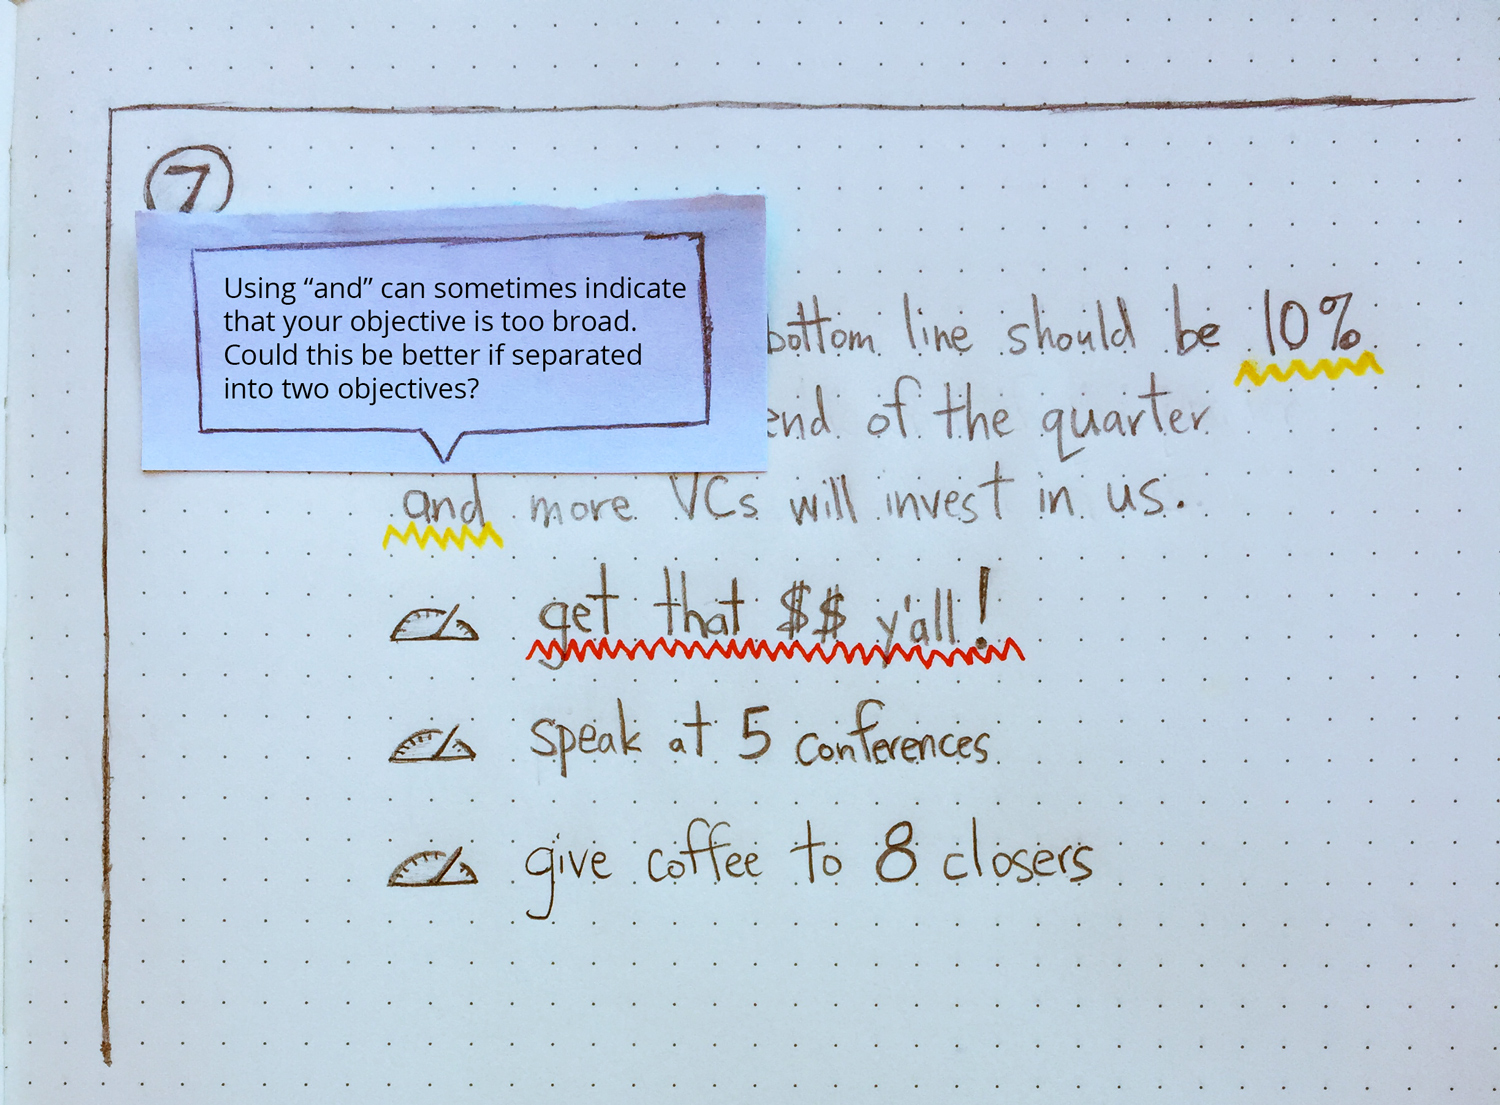 7
Using “and” can sometimes indicate
that your objective is too broad.
Could this be better if separated
into two objectives?
bottom line should be 10%
end of the quarter
and more VCs will invest in us.
get that $$ y'all!
speak at 5 conferences
give coffee to 8 closers